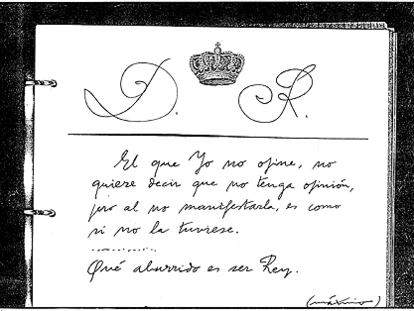 D. R.
El que Yo no opine, no
quiere decir que no tenga opinión,
pero al no manifestarla, es como
si no la tuviese.
Qué aburrido es ser Rey.
(máximo)